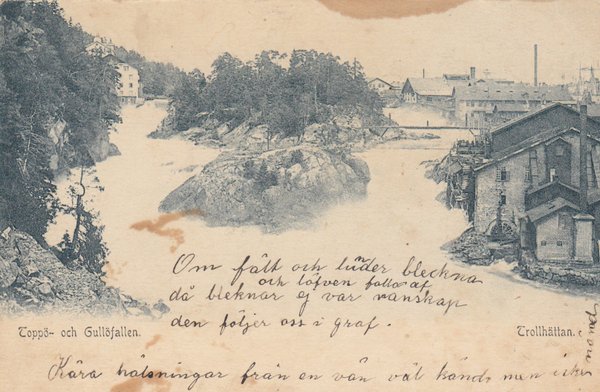 Om fält och lunder blekna
och löfven falla af
då bleknar ej vår vänskap
den följer oss i graf.
Toppö- och Gullöfallen.
Trollhättan.
Kära hälsningar från en vän väl känd men icke